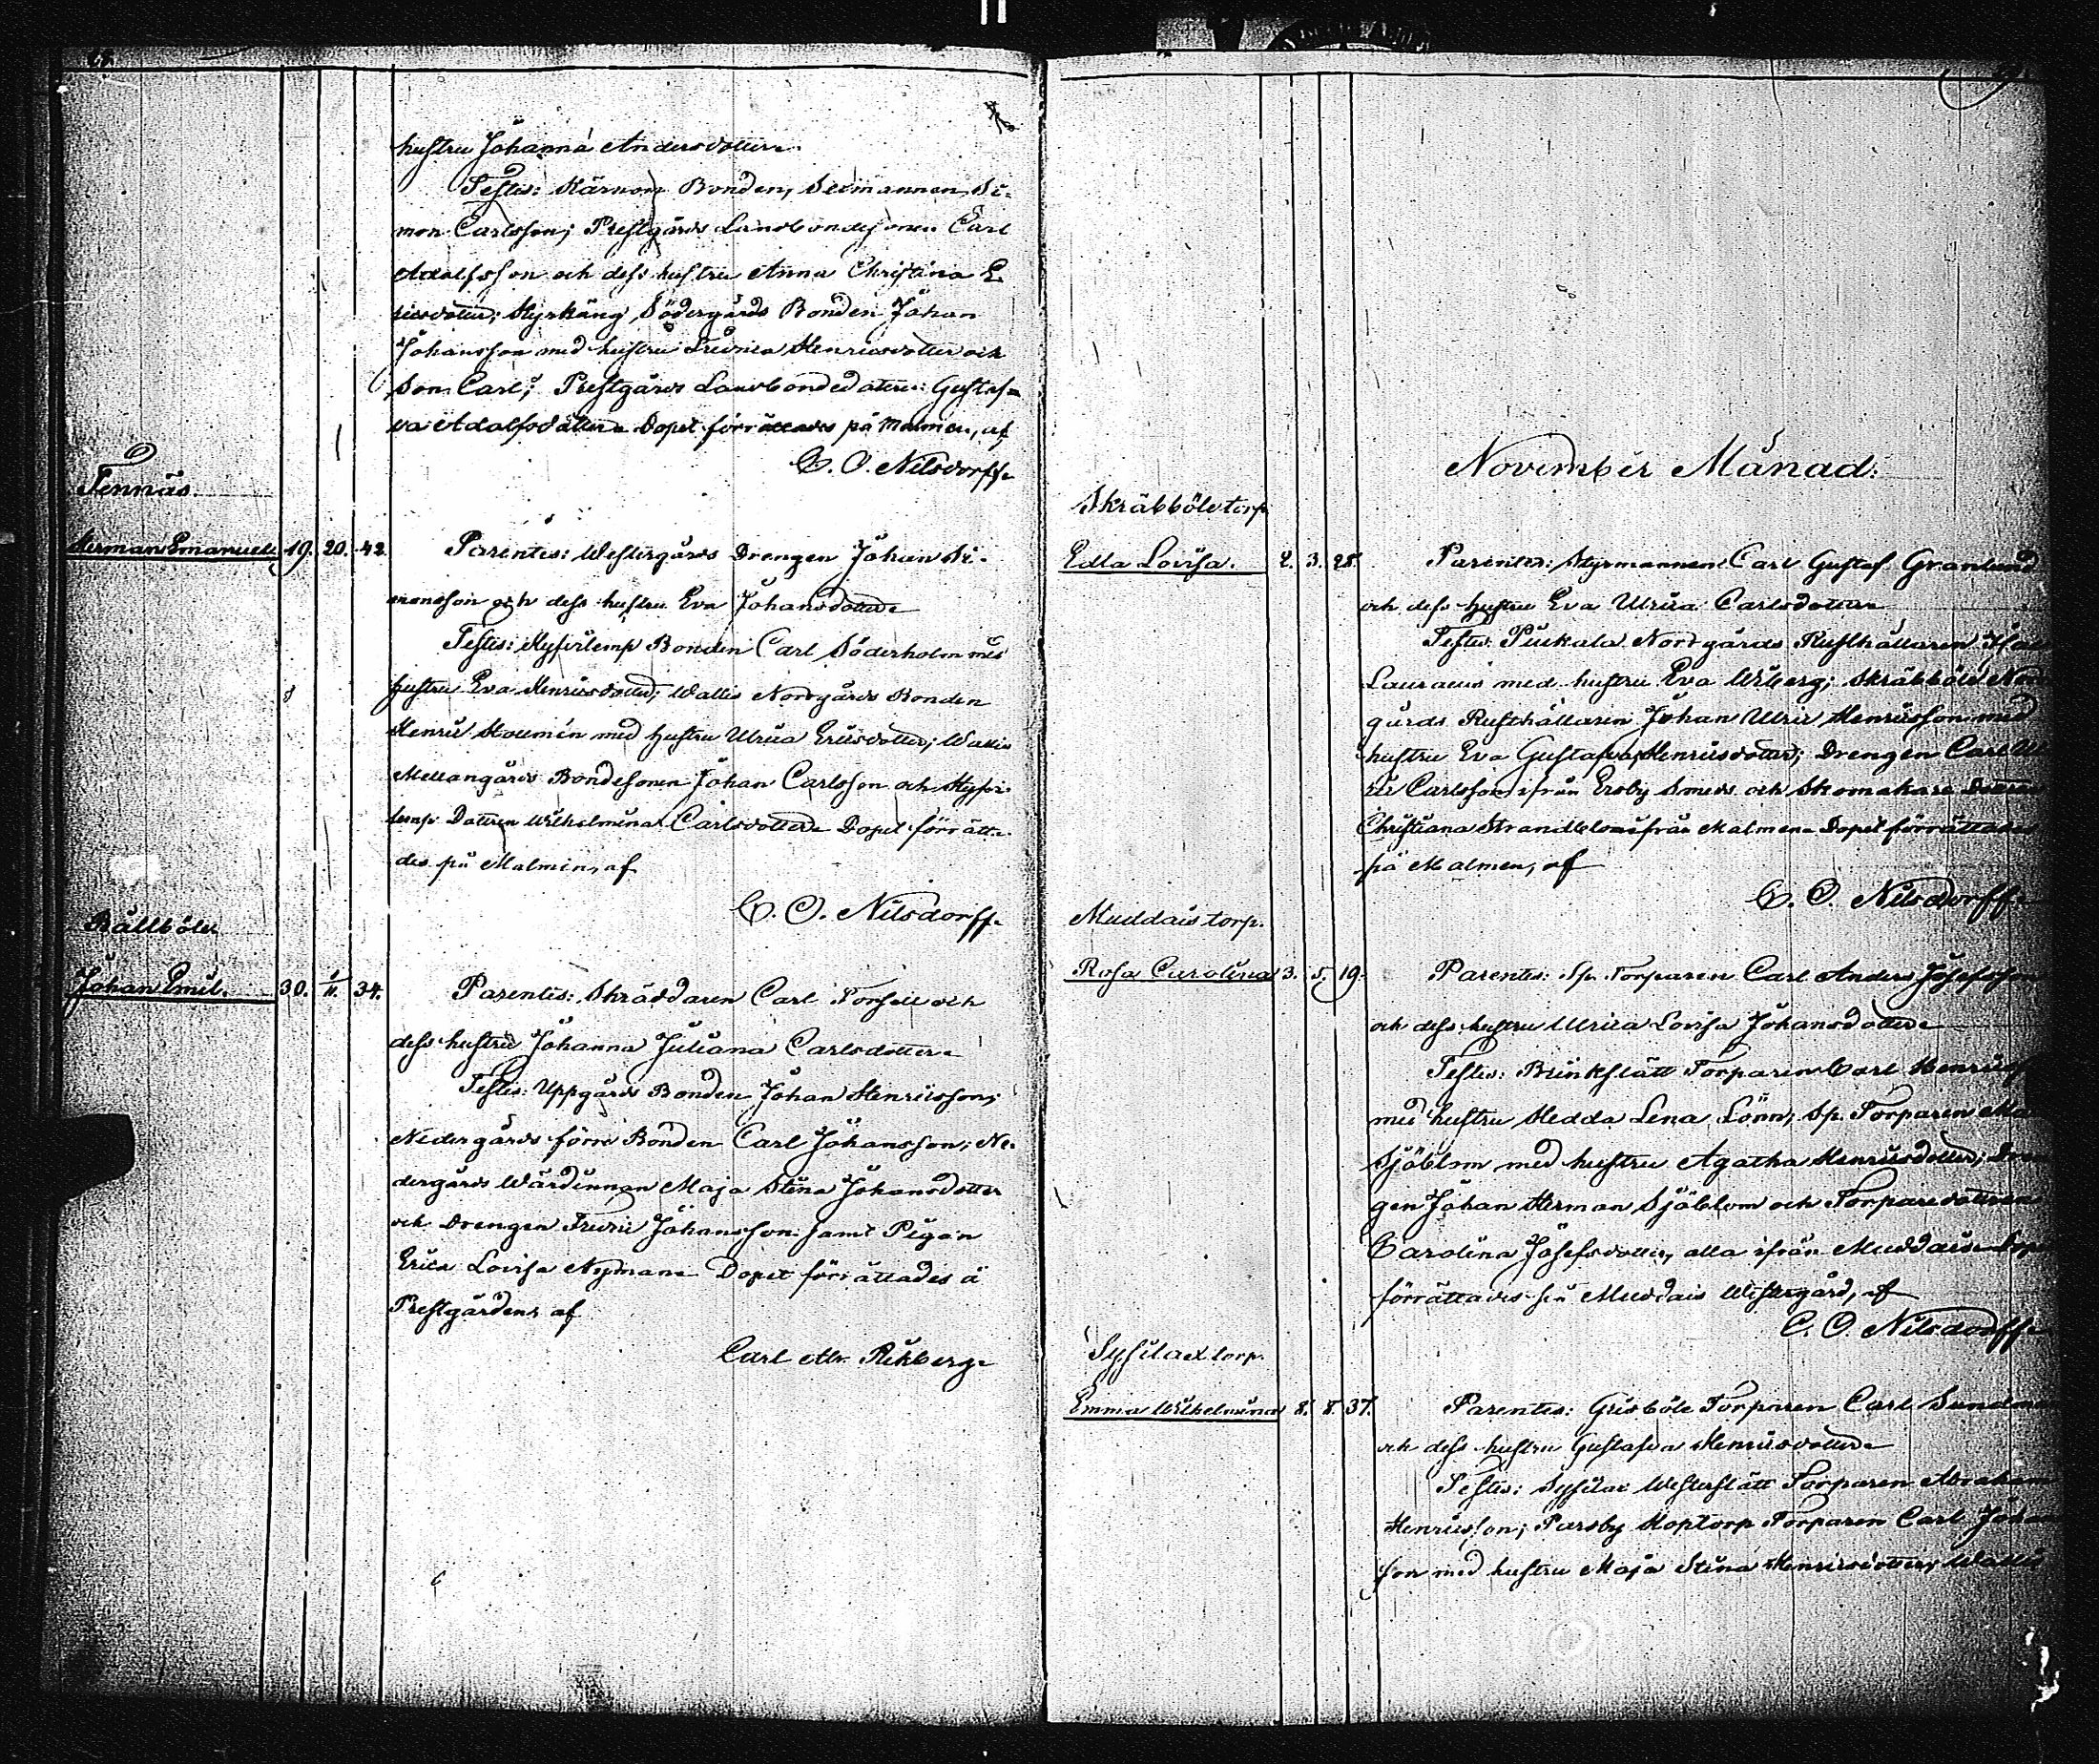 hustru Johanna Andersdotter.
Testes: Kärnom Bonden, Seximannen Si-
mon Carlsson; Prestgårds Landbondesonen Carl
Adolfsson och dess hustru Anna Christina E-
ricsdotter; Kyrkäng Södergårds Bonden Johan
Johansson med hustru Fredrica Henricsdotter och
Son Carl; Prestgårds Landbondedottren Gustaf-
va Adolfsdotter. Dopet förrättades på Malmen, af
C. O. Nilsdorff.
Tennäs
Herman Emanuel. 19. 20. 42. Parentes: Westergårds Drengen Johan Si-
monsson och dess hustru Eva Johansdotter.
Testes: Bonden Carl Söderholm med
hustru Eva Henricsdotter; Wallis Norrgårds Bonden
Henric med hustru Ulrica Ericsdotter; Wallis
Mellangårds Bondesonen Johan Carlsson och
Dottren Wilhelmina Carlsdotter. Dopet förrätta-
des på Malmen, af
C. O. Nilsdorff.
Rållböle
Johan Emil. 30. 1/11. 34. Parentes: Skräddaren Carl Forsell och
dess hustru Johanna Juliana Carlsdotter.
Testes: Uppgårds Bonden Johan Henricsson;
Nedergårds förre Bonden Carl Johansson; Ne-
dergårds Wärdinnan Maja Stina Johansdotter
och Drengen Fredric Johansson samt Pigan
Erica Lovisa Nyman. Dopet förrättades å
Prestgården, af
Carl Alr. Rikberg.
November Månad.
Skräbböle torp
Edla Lovisa. 2. 3. 28. Parentes: Styrmannen Carl Gustaf Granlund
och dess hustru Eva Ulrica Carlsdotter.
Testes: Piukala Norrgårds Rusthållaren
Lauraeus med hustru Eva Wiberg; Skräbböle Norr
gårds Rusthållaren Johan Ulric Henricsson med
hustru Eva Gustafva Henricsdotter; Drengen Carl Ul
ric Carlsson ifrån Ersby Smeds och Skomakare
Christiana Strandblom ifrån Malmen. Dopet förrättades
på Malmen, af
C. O. Nilsdorff.
Muddais torp.
Rosa Carolina 3. 5. 19. Parentes: Sp. Torparen Carl Anders Josefsson
och dess hustru Ulrica Lovisa Johansdotter.
Testes: Brinkslätt Torparen Carl Henricss
med hustru Hedda Lena Lönn; Sp. Torparen
Sjöblom med hustru Agatha Henricsdotter; Dren
gen Johan Herman Sjöblom och Torparedottren
Carolina Josefsdotter, alla ifrån Muddais. Dop
förrättades på Muddais Westergård, af
C. O. Nilsdorff.
Sysilax torp.
Emma Wilhelmina 8. 8. 37. Parentes: Grisböle Torparen Carl
och dess hustru Gustafva Henricsdotter.
Testes: Sysilax Westerslätt Torparen Abraham
Henricsson; Parsby Koptorp Torparen Carl Johan
son med hustru Maja Stina Henricsdotter; Wallis